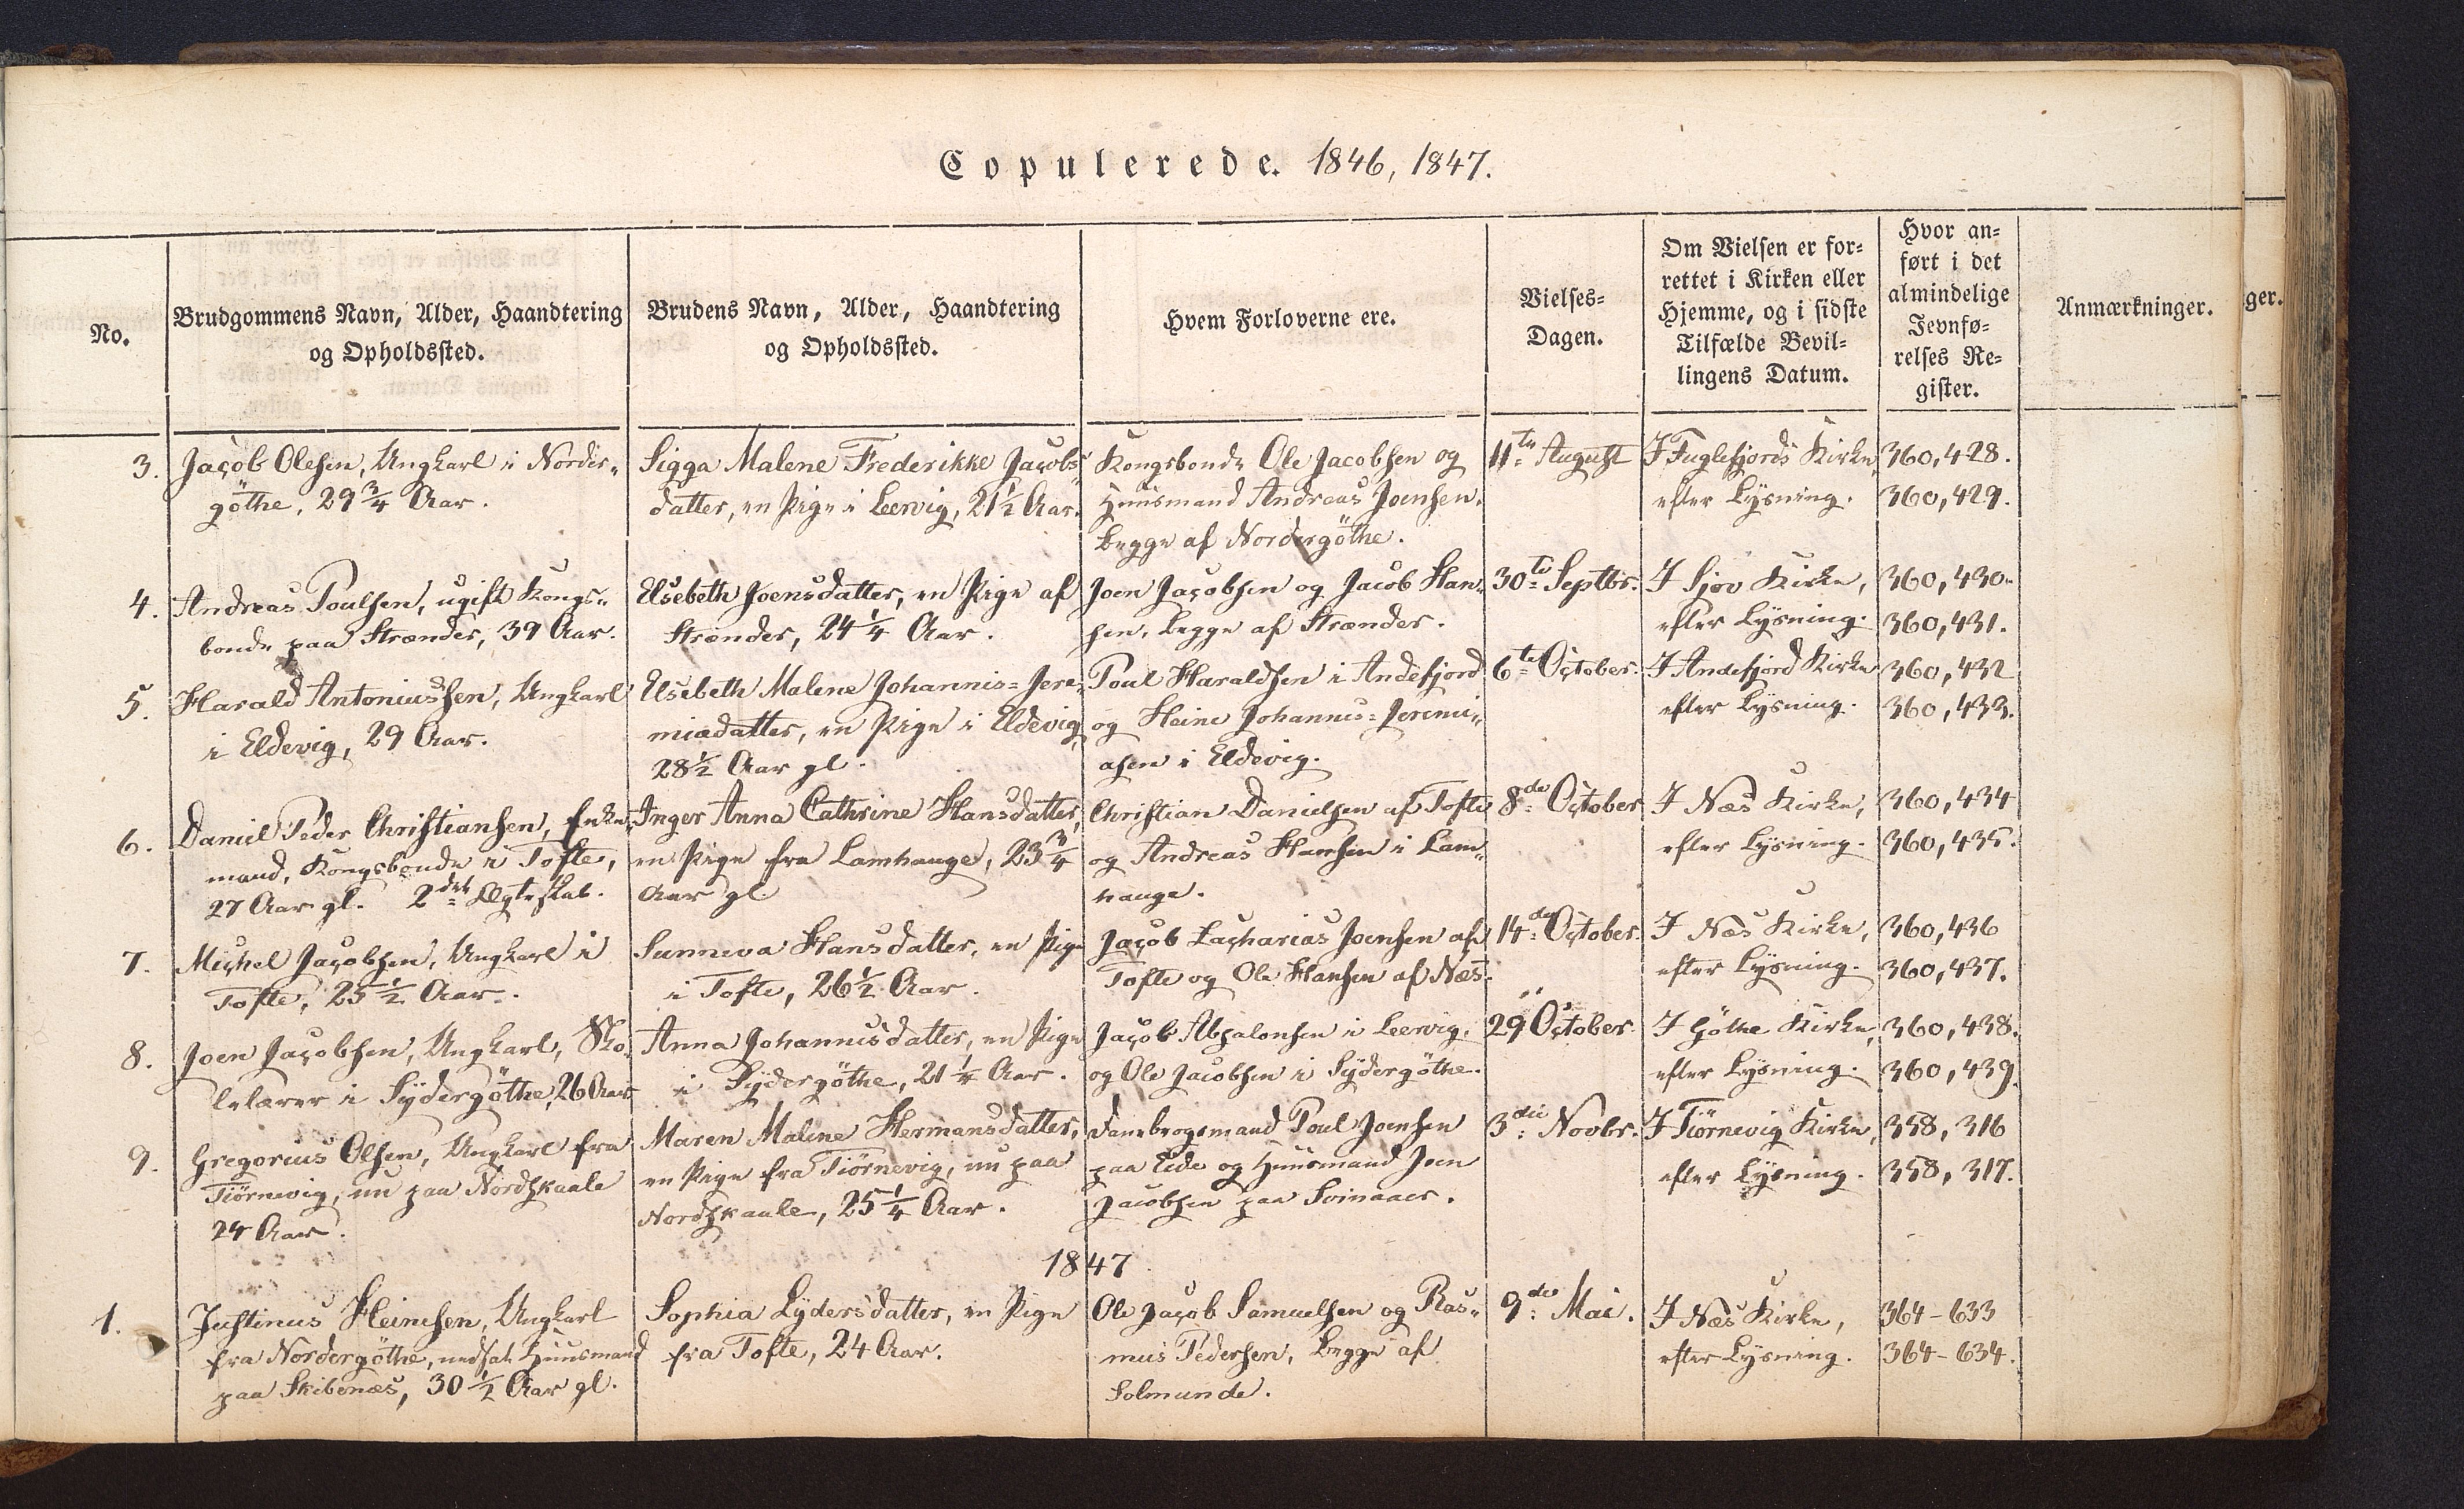 Copulerede. 1846, 1847.
No.
Brudgommens Navn, Alder, Haandtering
og Opholdssted.
Brudens Navn, Alder, Haandtering
og Opholdssted.
Hvem Forloverne ere.
Vielses-
Dagen.
Om Vielsen er for-
rettet i Kirken eller
Hjemme, og i sidste
Tilfælde Bevil-
lingens Datum.
Hvor an-
ført i det
almindelige
Jevnfø-
relses Re-
gister.
Anmærkninger.
ger.
3.
Jacob Olesen, Ungkarl i Norder-
göthe, 29 3/4 Aar.
Sigga Malene Frederikke Jacobs-
datter, en Pige i Leervig, 21 1/2 Aar.
Kongsbonde Ole Jacobsen og
Huusmand Andreas Joensen,
begge af Nordergöthe.
11te August
I Fuglefjords Kirke,
efter Lysning.
360,428.
360,429.
4.
Andreas Poulsen, ugift Kongs-
bonde paa Strænder, 39 Aar.
Elsebeth Joensdatter, en Pige af
Strænder, 24 1/4 Aar.
Joen Jacobsen og Jacob Han-
sen, begge af Strænder.
30te Septbr.
I Sjov Kirke,
efter Lysning.
360,430.
360,431.
5.
Harald Antoniussen, Ungkarl
i Eldevig, 29 Aar.
Elsebeth Malene Johannis-Jere-
miædatter, en Pige i Eldevig,
28 1/2 Aar gl.
Poul Haraldsen i Andefjord
og Heine Johannis-Jeremi-
asen i Eldevig.
6te October.
I Andefjord Kirke
efter Lysning.
360,432
360,433.
6.
Daniel Peder Christiansen, Enke-
mand, Kongsbonde i Tofte,
27 Aar gl. 2det Ægteskab.
Inger Anna Cathrine Hansdatter,
en Pige fra Lamhauge, 23 3/4
Aar gl
Christian Danielsen af Tofte
og Andreas Hansen i Lam-
hauge.
8de October
I Næs Kirke,
efter Lysning.
360,434
360,435.
7.
Michel Jacobsen, Ungkarl i
Tofte, 25 1/2 Aar.
Sunneva Hansdatter, en Pige
i Tofte, 26 1/2 Aar.
Jacob Zacharias Joensen af
Tofte og Ole Hansen af Næs.
14de October.
I Næs Kirke,
efter Lysning.
360,436
360,437.
8.
Joen Jacobsen, Ungkarl, Sko-
lelærer i Sydergöthe, 26 Aar
Anna Johannisdatter, en Pige
i Sydergöthe, 21 1/4 Aar.
Jacob Absalonsen i Leervig,
og Ole Jacobsen i Sydergöthe.
29 October.
I Göthe Kirke,
efter Lysning.
360,438.
360,439.
9.
Gregorius Olsen, Ungkarl fra
Tiörnevig, nu paa Nordskaale
24 Aar.
Maren Malene Hermansdatter,
en Pige fra Tiörnevig, nu paa
Nordskaale, 25 1/4 Aar.
Danebrogsmand Poul Joensen
paa Eide og Huusmand Joen
Jacobsen paa Svinaaer.
3die Novbr.
I Tiörnevig Kirke,
efter Lysning.
358, 316
358, 317.
1847
1.
Justinus Heinesen, Ungkarl
fra Nordergöthe, nedsat Huusmand
paa Skibenæs, 30 1/2 Aar gl.
Sophia Lydersdatter, en Pige
fra Tofte, 24 Aar.
Ole Jacob Samuelsen og Ras-
mus Pedersen, begge af
Solmunde.
9de Mai.
I Næs Kirke,
efter Lysning.
364-633
364-634.